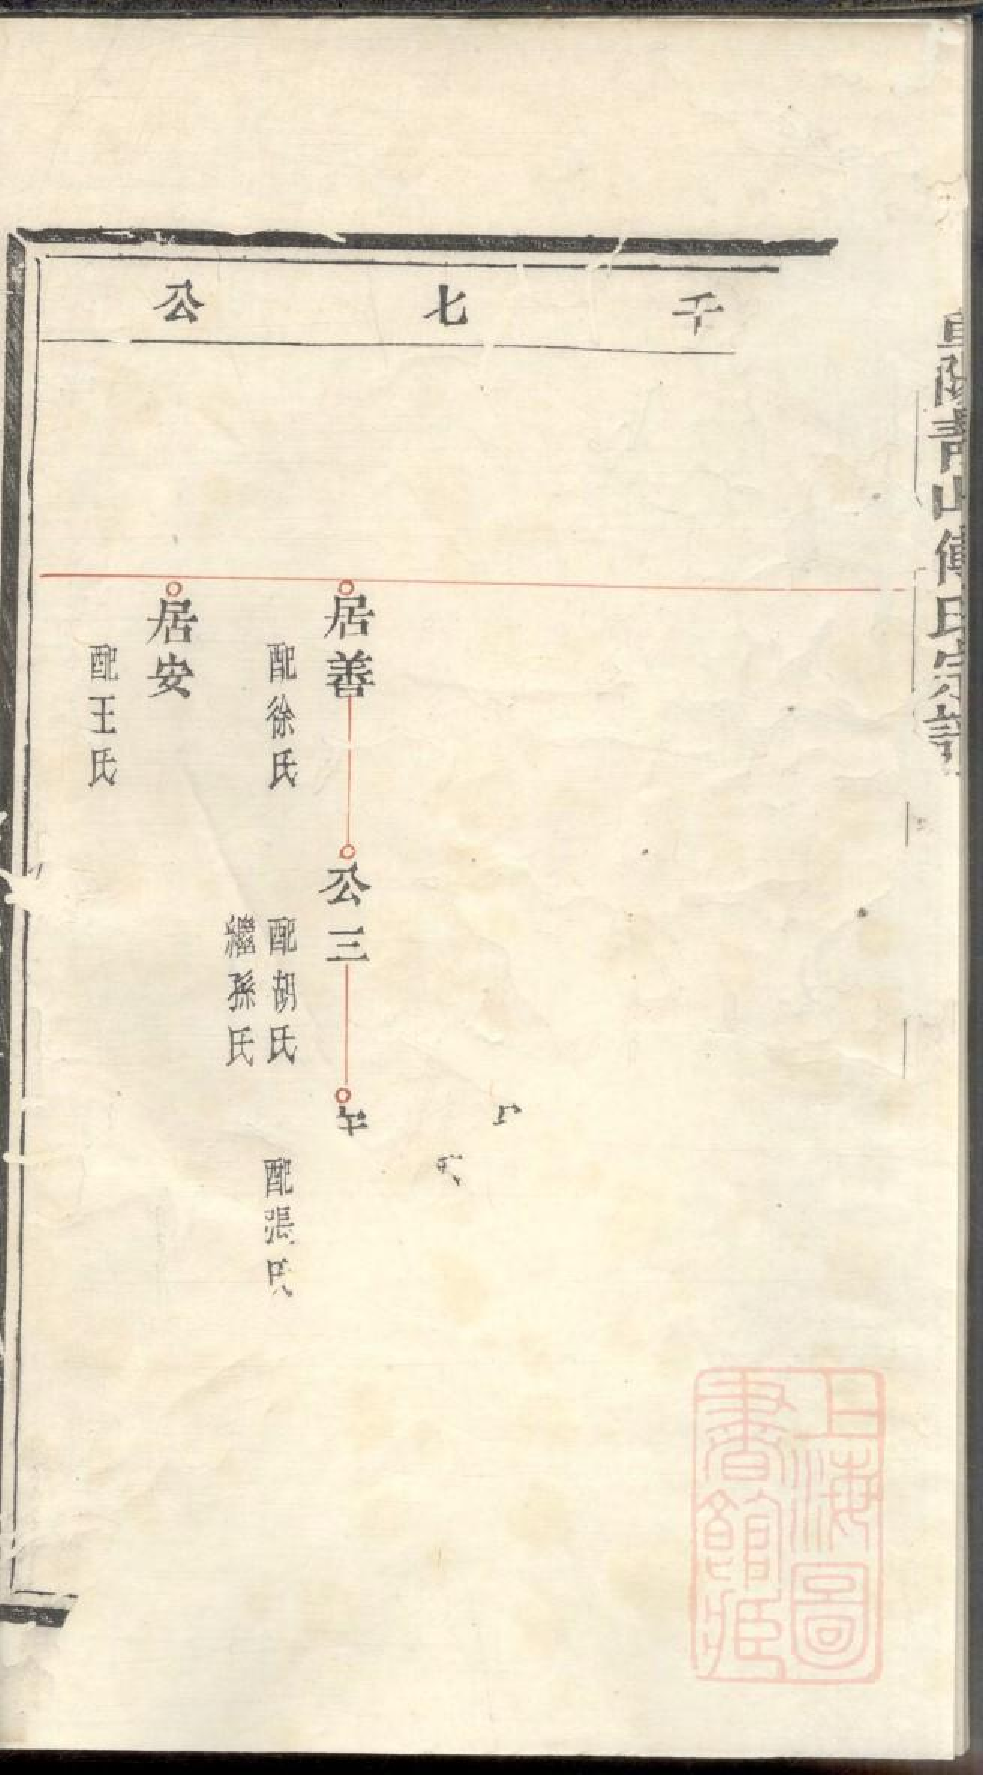 千七公
青山傅氏宗譜
居善
配徐氏
公三
配胡氏
繼孫氏
配張氏
居安
配王氏
上海圖
書館藏